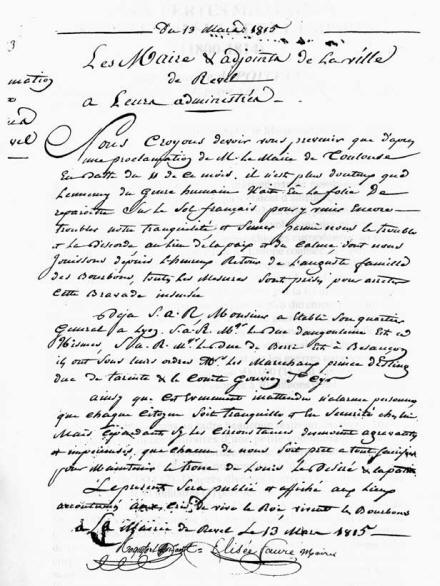 Du 13 Mars 1815
Les Maire & adjoints de la ville
de Revel
a Leurs administrés.
Nous Croyons devoir vous prevenir que d'apres
une proclamation de M. le Maire de Toulouse
En datte du 11 de ce mois. il n'est plus douteux que
Lennemy du genre humain N'ait Eu la folie De
reparoitre Sur le Sol français pour y venir Encore
troubler notre tranquilité et Semer parmi nous le trouble
et la discorde au lieu de la paix et du Calme dont nous
Jouissons depuis l'heureux Retour de l'auguste famille
des Bourbons, toutes les Mesures Sont prises pour arreter
Cette Bravade insensée
Deja S.A.R Monsieur a Etabli Son quartier
General a Lyon. S.A.R. Mgr. Le Duc dangouleme Est a
Nismes, S.A.R. Mgr. Le Duc de Berri Est a Besançon
ils ont Sous leurs ordres les Marechaux prince d'Esling
duc de tarente & le Comte Gouvion St Cyr
ainsy que cet Evenement inattendu n'alarme personne
que chaque Citoyen Soit tranquille et En Securité chez lui
Mais Cependant Si les Circonstances devenoient agravantes
et imperieuses, que chacun de nous Soit pret a tout
pour Maintenir le trone de Louis le Desiré & la patrie
Le present Sera publié et affiché aux lieux
accoutumés aux Cris de vive le Roi vivent les Bourbons
a La Mairie de Revel Le 13 Mars 1815
Elisée Caure Maire